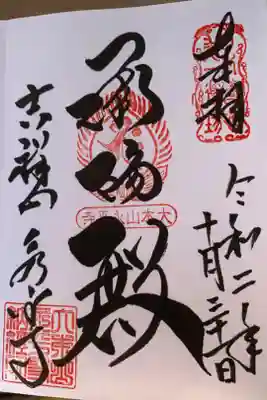 奉拝
令和二年
十月
承陽殿
大本山永平寺
吉祥山 永平寺